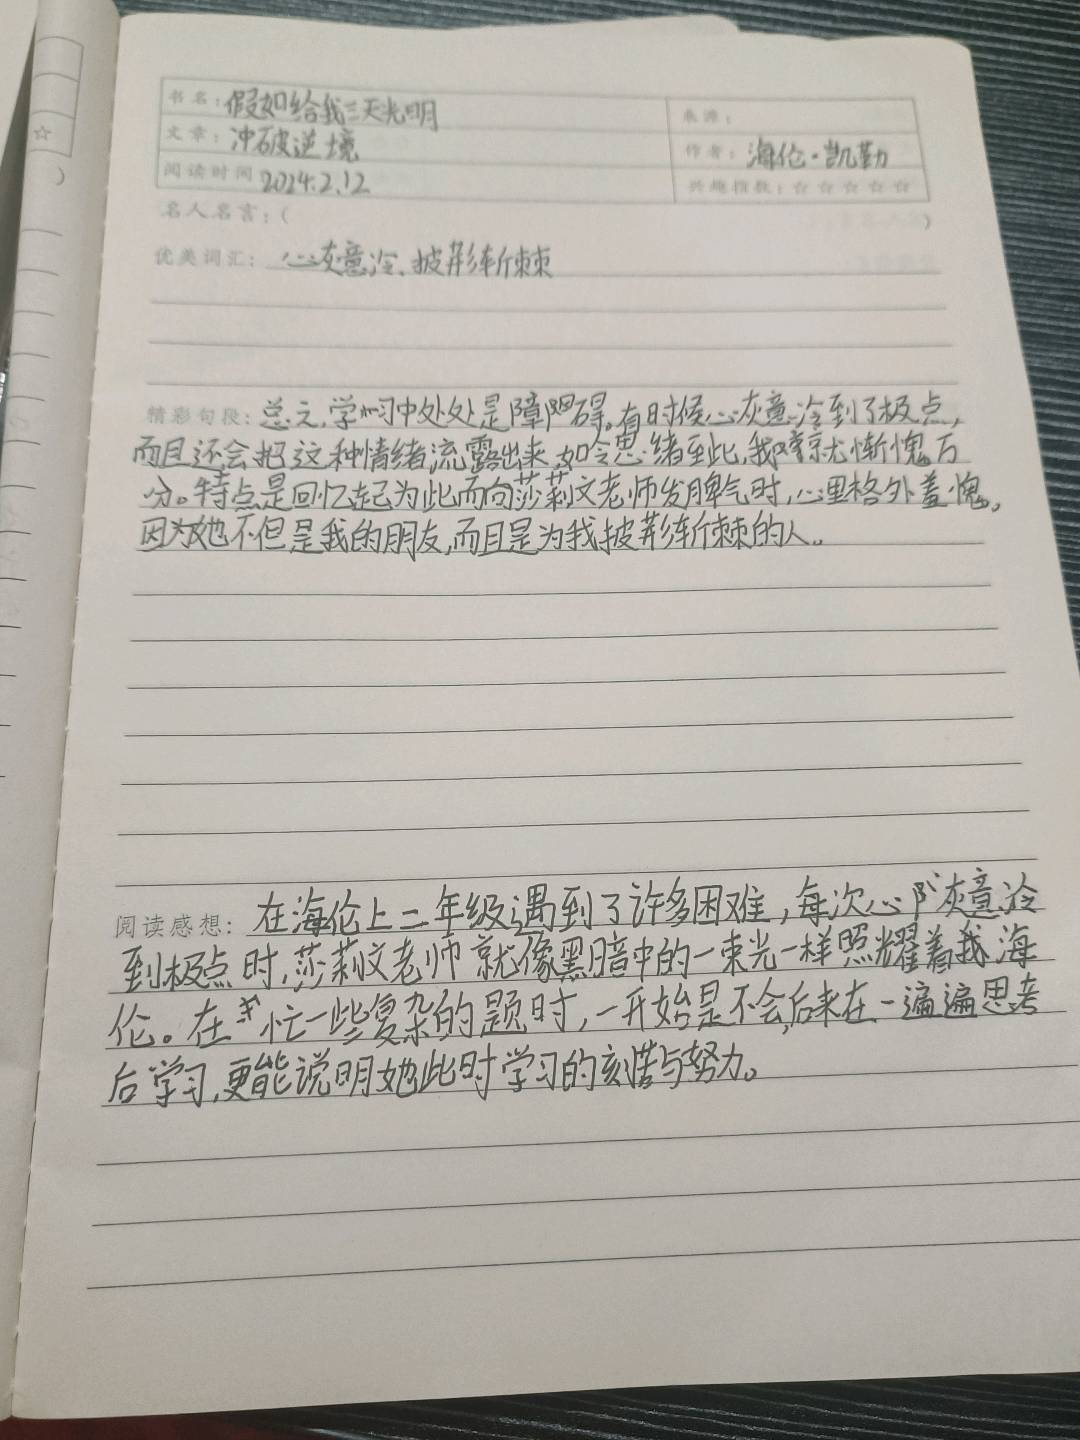 书名：假如给我三天光明
来源：
文章：冲破逆境
作者：海伦·凯勒
阅读时间 2024.2.12
兴趣指数：☆☆☆☆☆
名人名言：（ ）
优美词汇：心灰意冷、披荆斩棘
精彩句段：总之，学习中处处是障碍。有时候心灰意冷到了极点，
而且还会把这种情绪流露出来，如今思绪至此，我就惭愧万
分。特点是回忆起为此而向莎莉文老师发脾气时，心里格外羞愧。
因为她不但是我的朋友，而且是为我披荆斩棘的人。
阅读感想：在海伦上二年级遇到了许多困难，每次心灰意冷
到极点时，莎莉文老师就像黑暗中的一束光一样照耀着我海
伦。在忙一些复杂的题时，一开始是不会，后来在一遍遍思考
后学习，更能说明她此时学习的刻苦与努力。